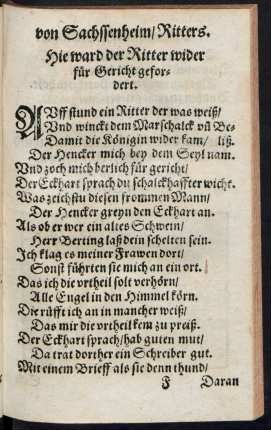 von Sachssenheim/ Ritters.
Hie ward der Ritter wider
für Gericht gefor-
dert.
AUff stund ein Ritter der was weiß/
Und winckt dem Marschalck uñ Be-
Damit die Königin wider kam/ liß.
Der Hencker mich bey dem Seyl nam.
Und zoch mich herlich für gericht/
Der Eckhart sprach du schalckhaffter wicht.
Was zeichstu diesen frommen Mann/
Der Hencker greyn den Eckart an.
Als ob er wer ein altes Schwein/
Herr Berting laß dein schelten sein.
Ich klag es meiner Frawen dort/
Sonst führten sie mich an ein ort.
Das ich die urtheil solt verhörn/
Alle Engel in den Himmel körn.
Die rüfft ich an in mancher weiß/
Das mir die urtheil kem zu preiß.
Der Eckhart sprach/ hab guten mut/
Da trat dorther ein Schreiber gut.
Mit einem Brieff als sie denn thund/
F Daran